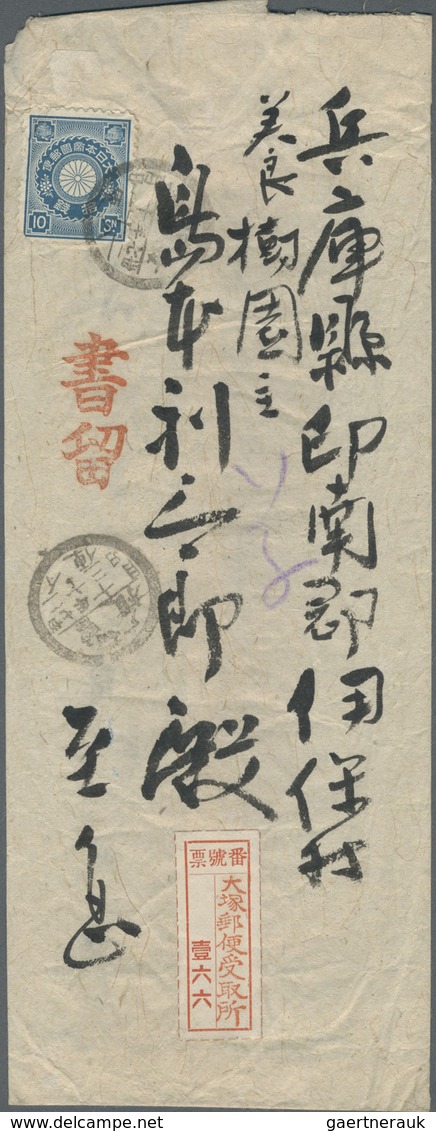 兵庫縣印南郡伊保村
美良樹園主
島本利三郎殿
至急
書留
大日本帝國郵便
10 SN
番號票
大塚郵便受取所
壹六六
www.delcampe.net
gaertnerauk